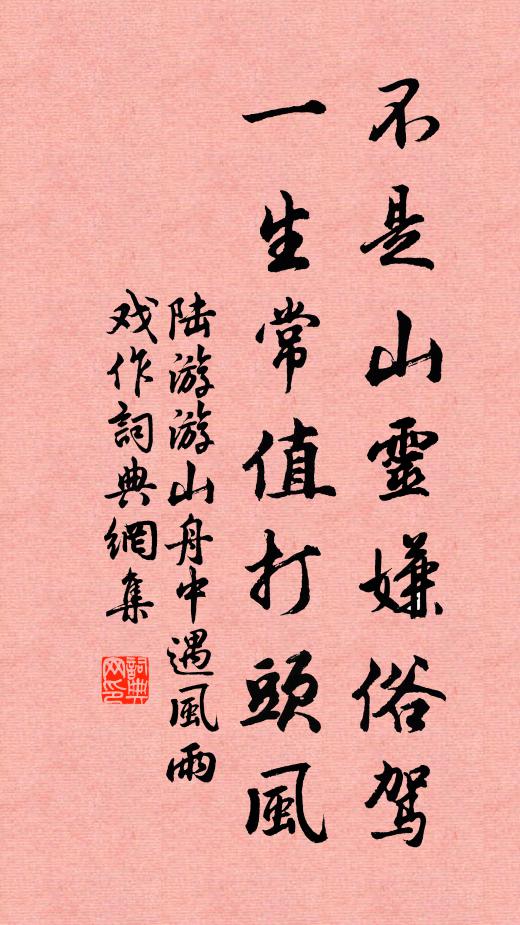 不是山靈嫌俗駕
一生常值打頭風
陆游游山舟中遇風雨
戏作詞典網集
詞典網印